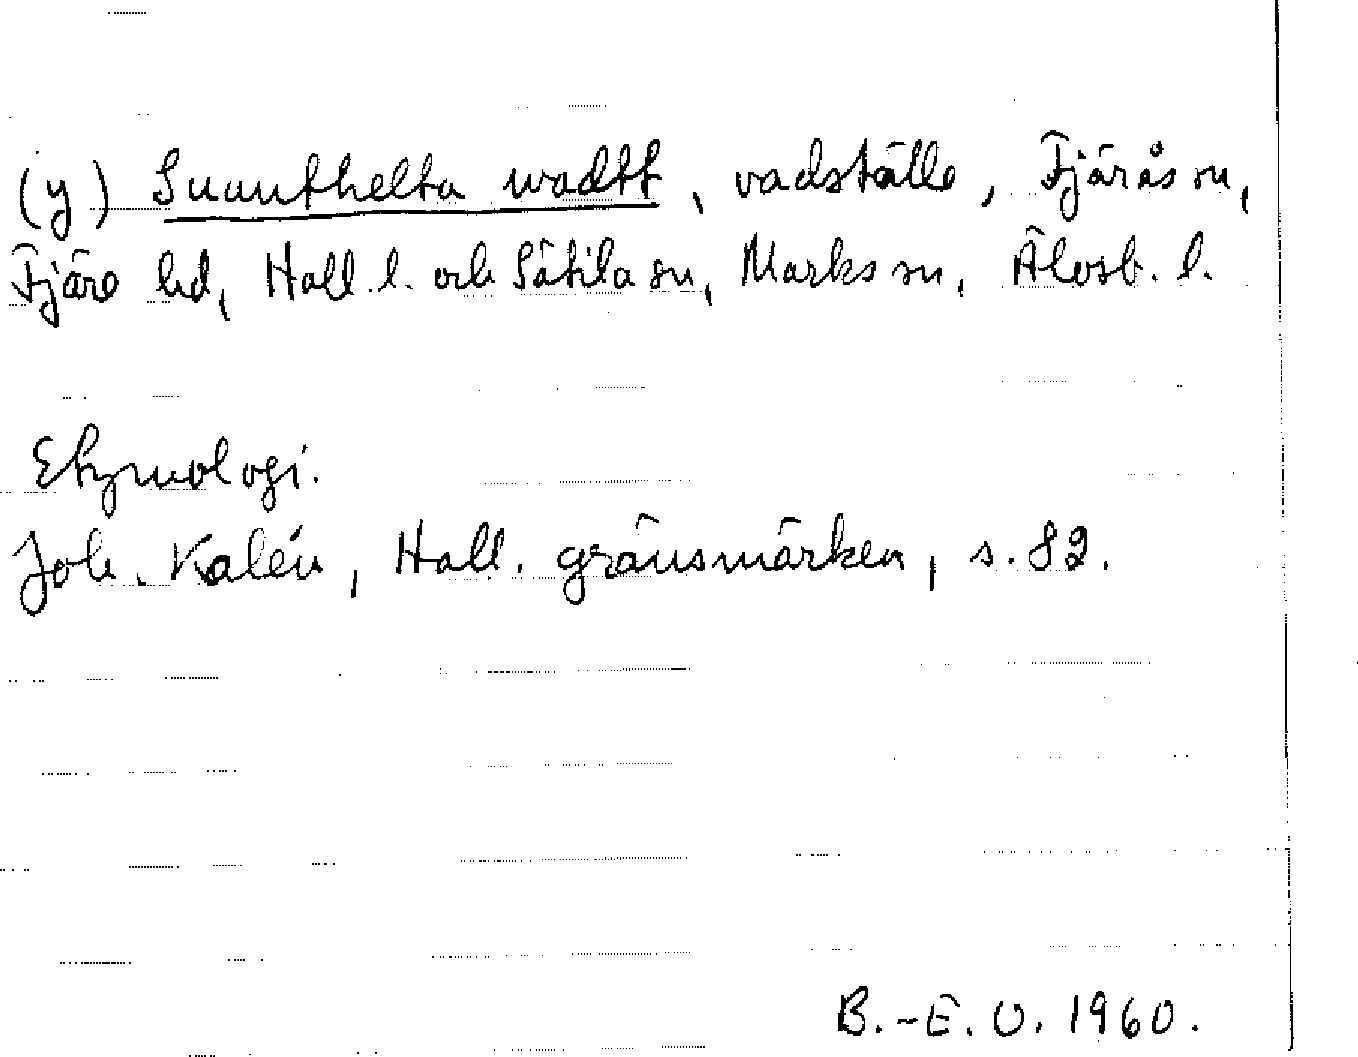 (y) Suunthelta wadtt, vadställe, Fjärås sn,
Fjäre hd, Hall. l. och Sätila sn, Marks sn, Älvsb. l.
Etymologi.
Joh. Kalén, Hall. gränsmärken, s. 82.
B.-E. O. 1960.